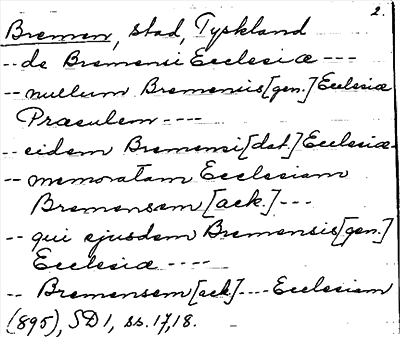 2.
Bremen, stad, Tyskland
-- de Bremenii Ecclesiæ ---
-- nullum Bremensis [gen.] Ecclesiæ
Præsulem ----
-- eidem Bremensi [dat.] Ecclesiæ-
-- memoratam Ecclesiam
Bremensem [ack.] ---
-- qui ejusdem Bremensis [gen.]
Ecclesiæ ----
-- Bremensem [ack] ---- Ecclesiam
(895), SD 1, ss. 17, 18.